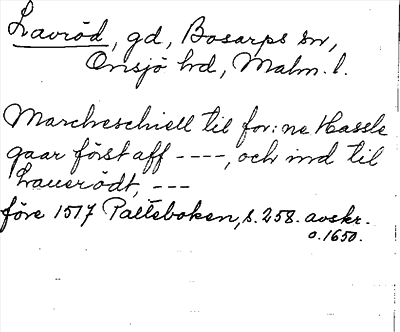 Lavröd, gd, Bosarps sn,
Onsjö hd, Malm. l.
Marcheschiell til for:ne Hassle
gaar först aff ----, och ind til
Lauerödt, ---
före 1517 Palteboken, s. 258. avskr.
o. 1650.